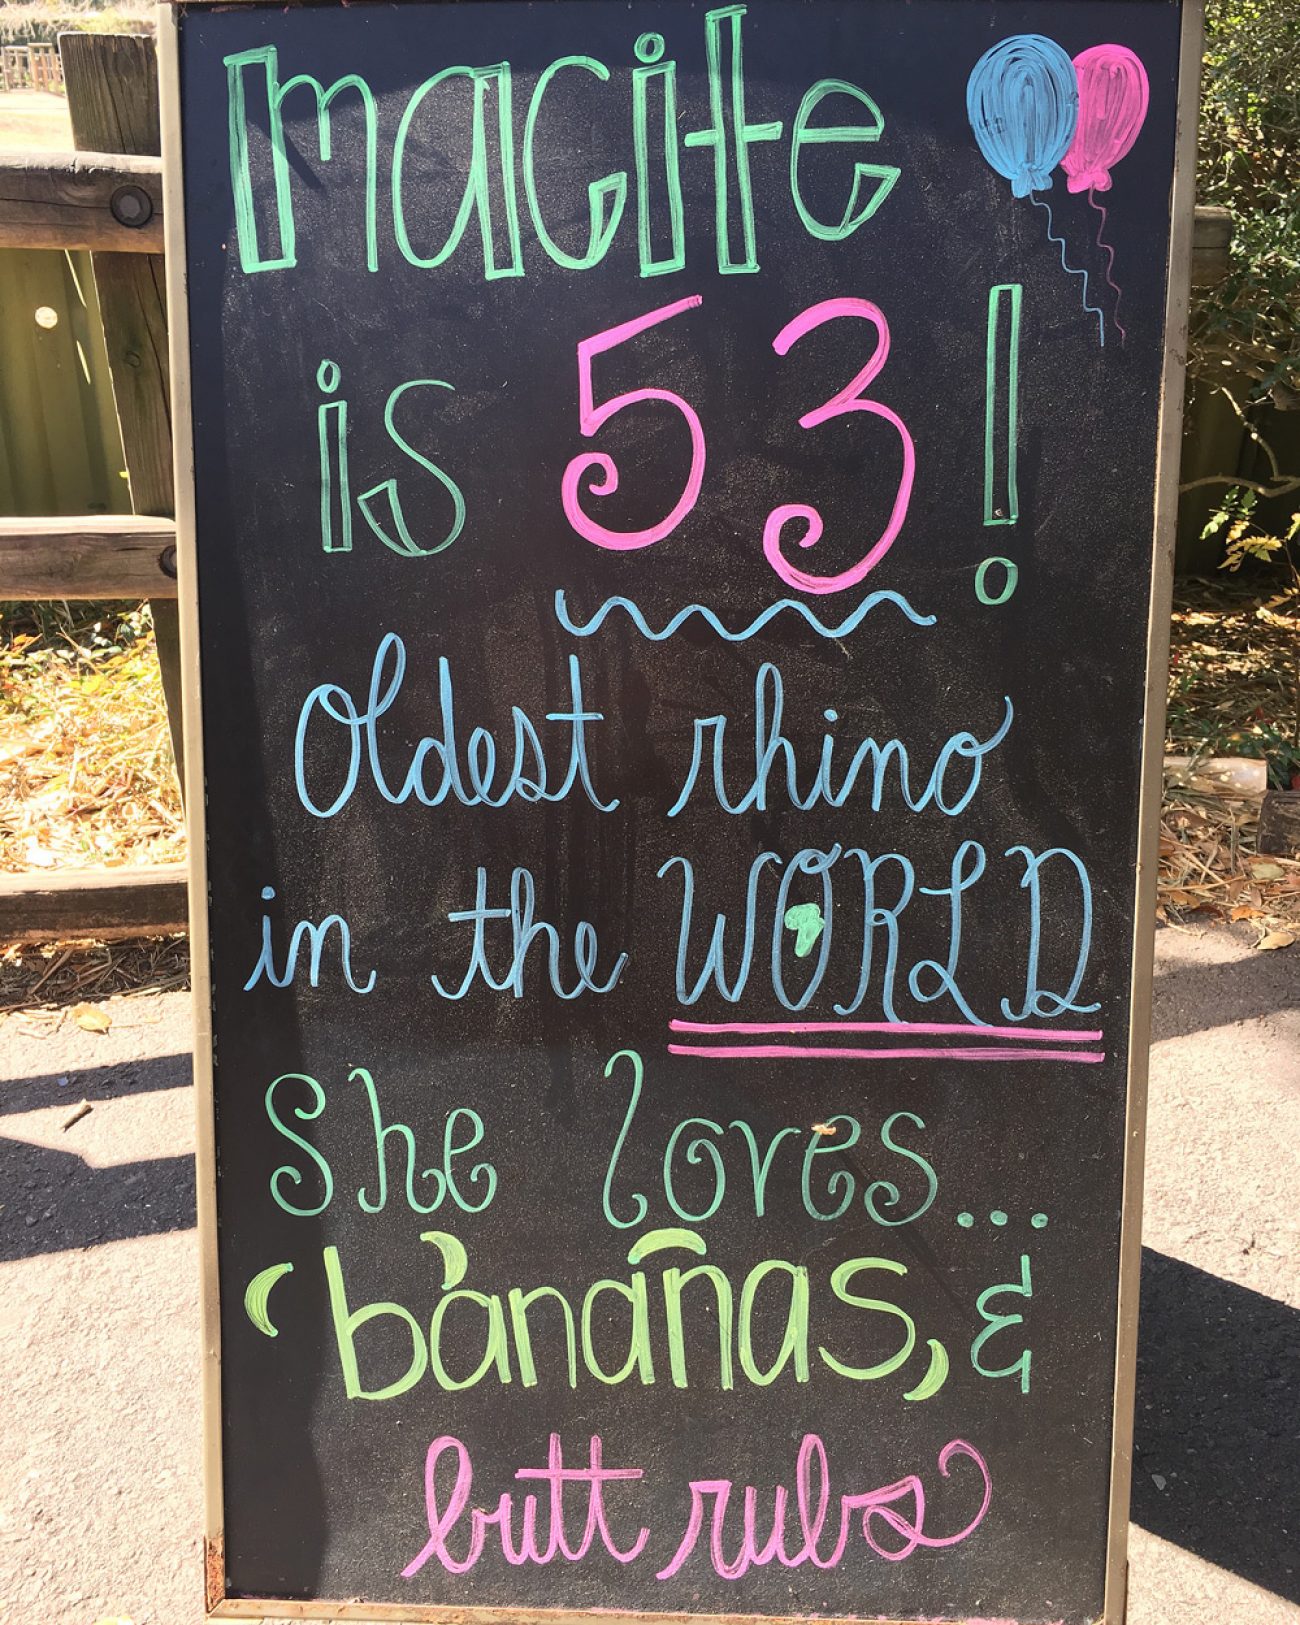 macite
is 53!
Oldest rhino
in the WORLD
She loves...
bananas, &
butt rubs